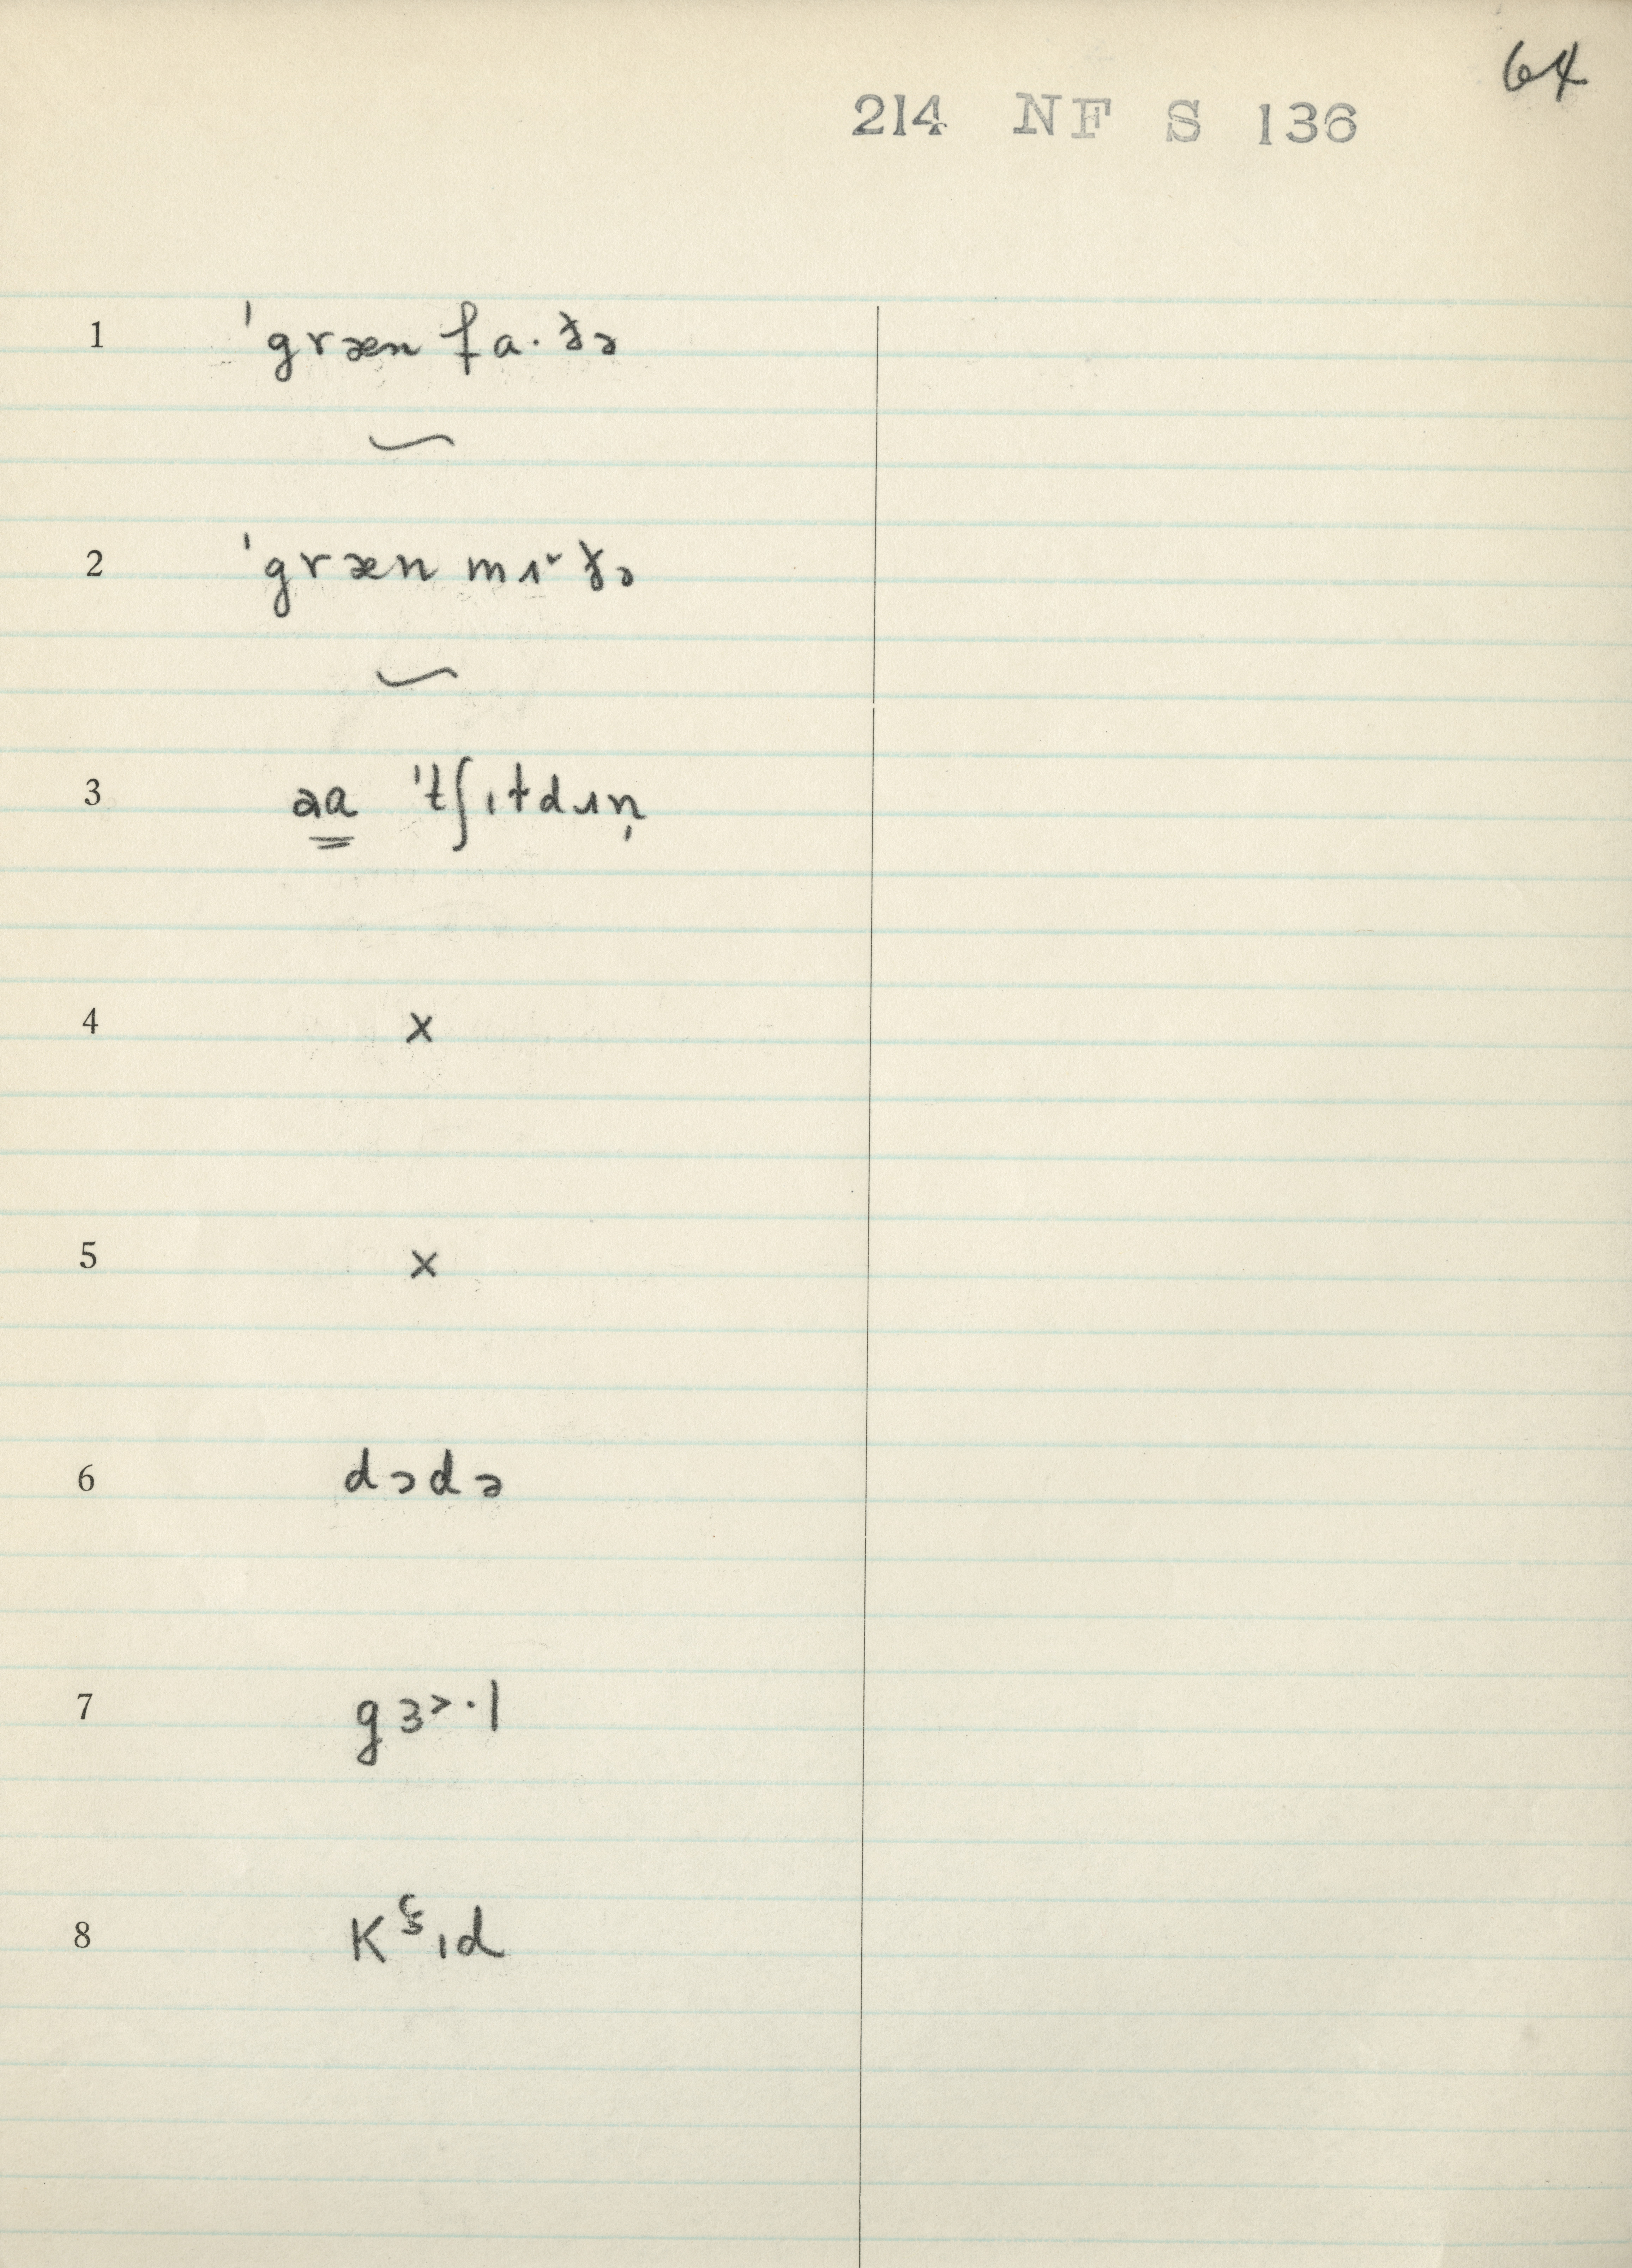 64
214 NF S 136
1 ˈgræn fa·ðə
⁓
2 ˈgræn mʌ˅ðə
⁓
3 aa ˈtʃɪtdɹɪn̩
4 x
5 x
6 dɔdə
7 gɜ>·l
8 kɪd